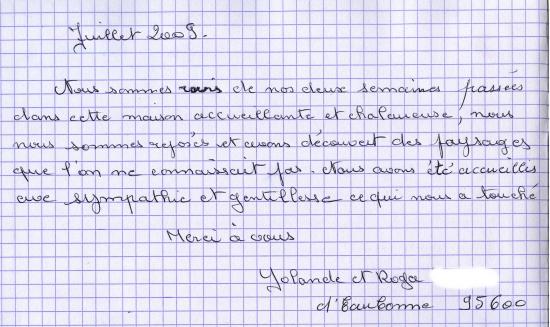 Juillet 2009.
Nous sommes ravis de nos deux semaines passées
dans cette maison accueillante et chaleureuse, nous
nous sommes reposés et avons découvert des paysages
que l'on ne connaissait pas. Nous avons été accueillis
avec sympathie et gentillesse ce qui nous a touché
Merci à vous
Yolande et Roger
d'Eaubonne 95600